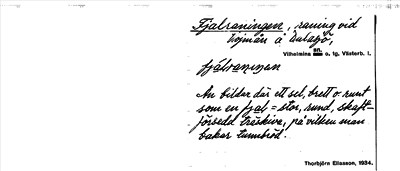 Fjalraningen, raning vid
Vojmån å Aulasjö,
Vilhelmina sn. o. tg. Västerb. l.
fjälraningen
Ån bildar där ett sel, brett o. runt
som en fjal = stor, rund, skaft-
försedd träskiva, på vilken man
bakar tunnbröd.
Thorbjörn Eliasson, 1934.